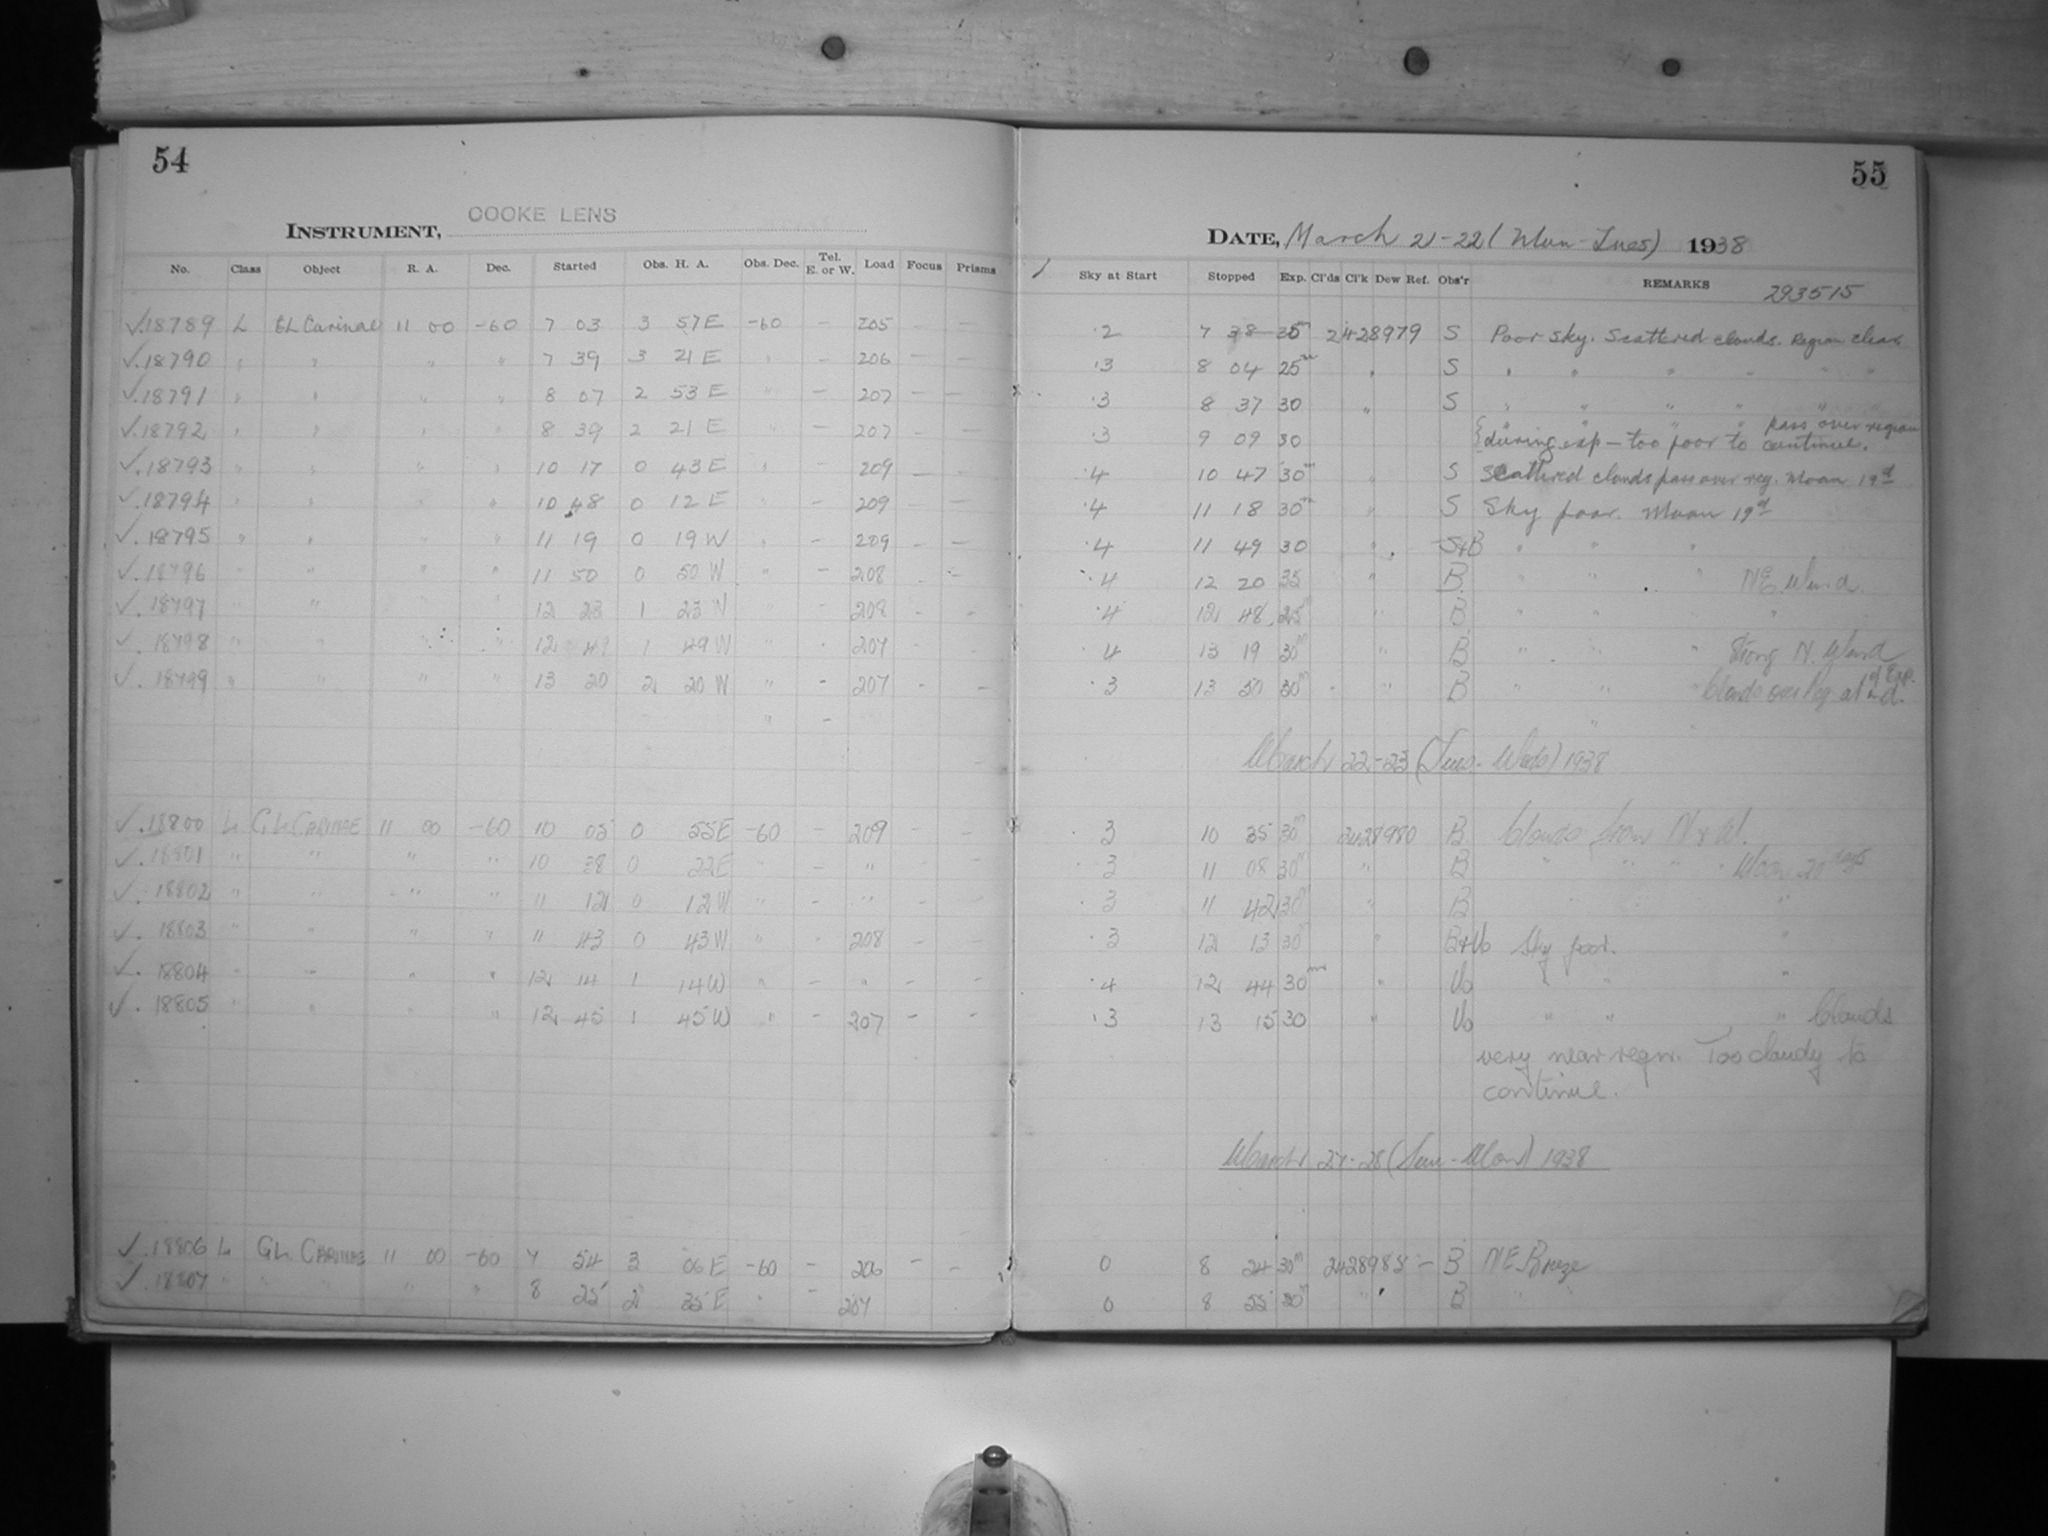 54
INSTRUMENT, COOKE LENS
No. Class Object R. A. Dec. Started Obs. H. A. Obs. Dec. Tel. E. or W. Load Focus Prisms
✓.18789 L GL Carinae 11 00 -60 7 03 3 57 E -60 - 205 - -
✓.18790 " " " " 7 39 3 21 E " - 206 - -
✓.18791 " " " " 8 07 2 53 E " - 207 - -
✓.18792 " " " " 8 39 2 21 E " - 207 - -
✓.18793 " " " " 10 17 0 43 E " - 209 - -
✓.18794 " " " " 10 48 0 12 E " - 209 - -
✓.18795 " " " " 11 19 0 19 W " - 209 - -
✓.18796 " " " " 11 50 0 50 W " - 208 - -
✓.18797 " " " " 12 23 1 23 W " - 208 - -
✓.18798 " " " " 12 49 1 49 W " - 207 - -
✓.18799 " " " " 13 20 2 20 W " - 207 - -
" -
✓.18800 L GL CARINAE 11 00 -60 10 05 0 55 E -60 - 209 - -
✓.18801 " " " " 10 38 0 22 E " - " - -
✓.18802 " " " " 11 12 0 12 W " - " - -
✓.18803 " " " " 11 43 0 43 W " - 208 - -
✓.18804 " " " " 12 14 1 14 W " - " - -
✓.18805 " " " " 12 45 1 45 W " - 207 - -
✓.18806 L GL CARINAE 11 00 -60 7 54 3 06 E -60 - 206 - -
✓.18807 " " " " 8 25 2 35 E " - 207
55
DATE, March 21-22 (Mon-Tues) 1938
Sky at Start Stopped Exp. Cl'ds Cl'k Dew Ref. Obs'r REMARKS
293515
.2 7 38 35 2428979 S Poor sky. Scattered clouds. Region clear
.3 8 04 25m " S " " " " " "
.3 8 37 30 " S " " " " " "
.3 9 09 30 " " " " pass over region
during exp - too poor to continue.
.4 10 47 30m " S Scattered clouds pass over reg. Moon 19d
.4 11 18 30m " S Sky poor. Moon 19d
.4 11 49 30 " S+B " " "
.4 12 20 35 " B " " " NE Wind.
.4 12 48 25m " B " " " "
.4 13 19 30m " B " " " Strong N. Wind
.3 13 50 30m " B " " " Clouds over Reg. at end of Exp.
"
March 22-23 (Tues-Weds) 1938
.3 10 35 30m 2428980 B Clouds from N & W.
.3 11 08 30m " B " " " " Moon 20 days
.3 11 42 30m " B " " " "
.3 12 13 30m " Sky poor. "
.4 12 44 30m " " " "
.3 13 15 30 " " " " Clouds
very near regn. Too cloudy to
continue.
March 27-28 (Sun-Mon) 1938
0 8 24 30m 2428985 - B NE Breeze
0 8 55 30m " B " "